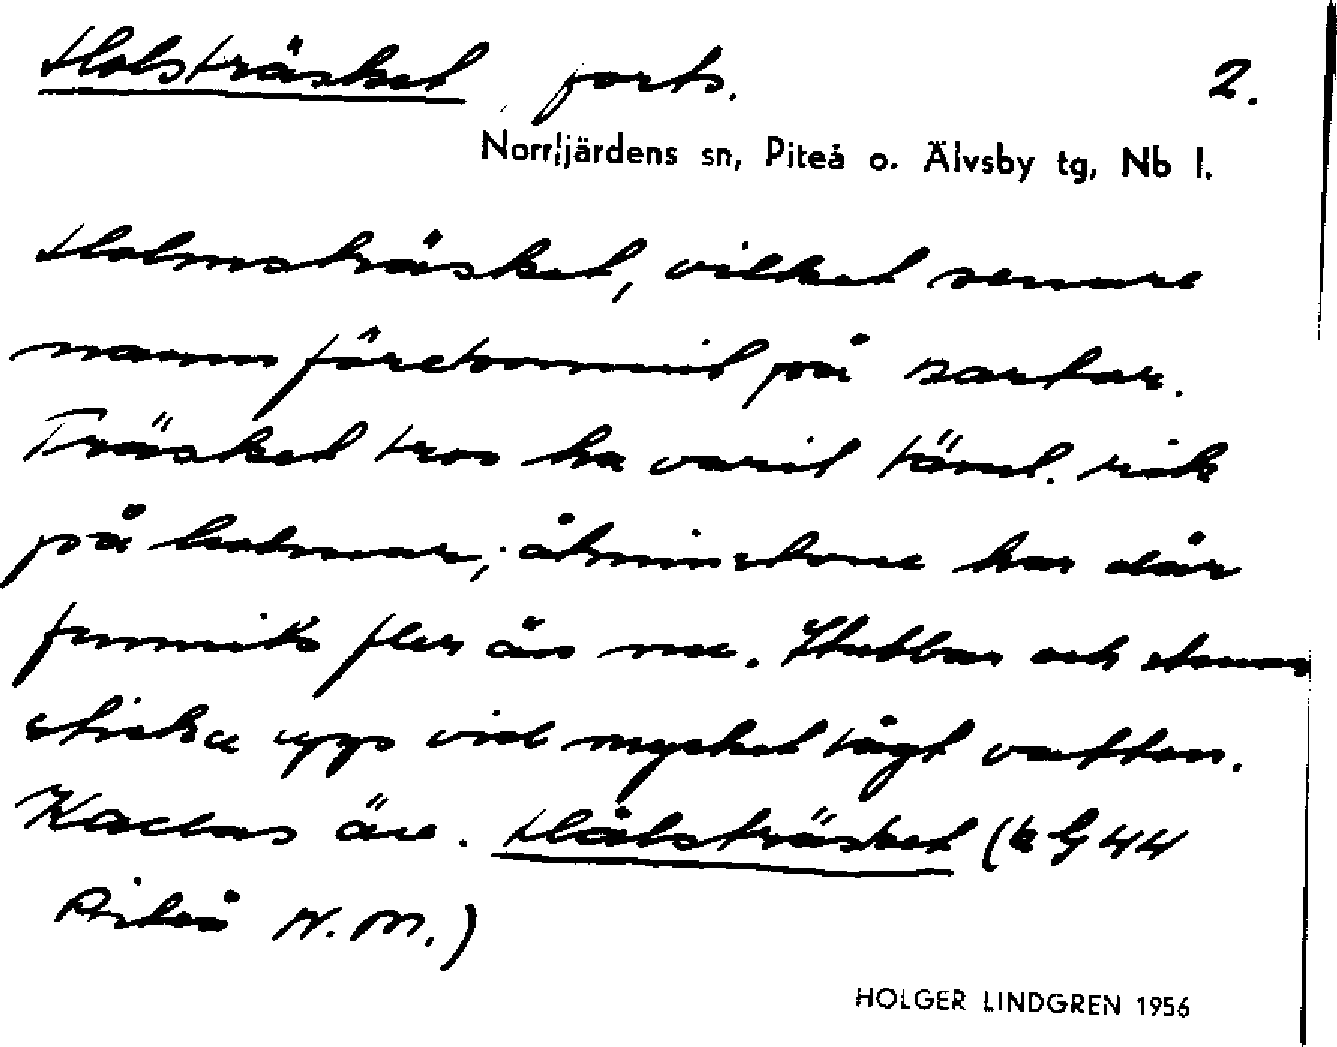 Holsträsket, forts. 2.
Norrfjärdens sn, Piteå o. Älvsby tg, Nb l.
Holmsträsket, vilket senare
namn förekommit på kartor.
Träsket tros ha varit täml. rik
på holmar; åtminstone har där
funnits fler än nu. Stubbar och stenar
sticka upp vid mycket lågt vatten.
Kallas äv. Hålsträsket (k G 44
Piteå N.M.)
HOLGER LINDGREN 1956